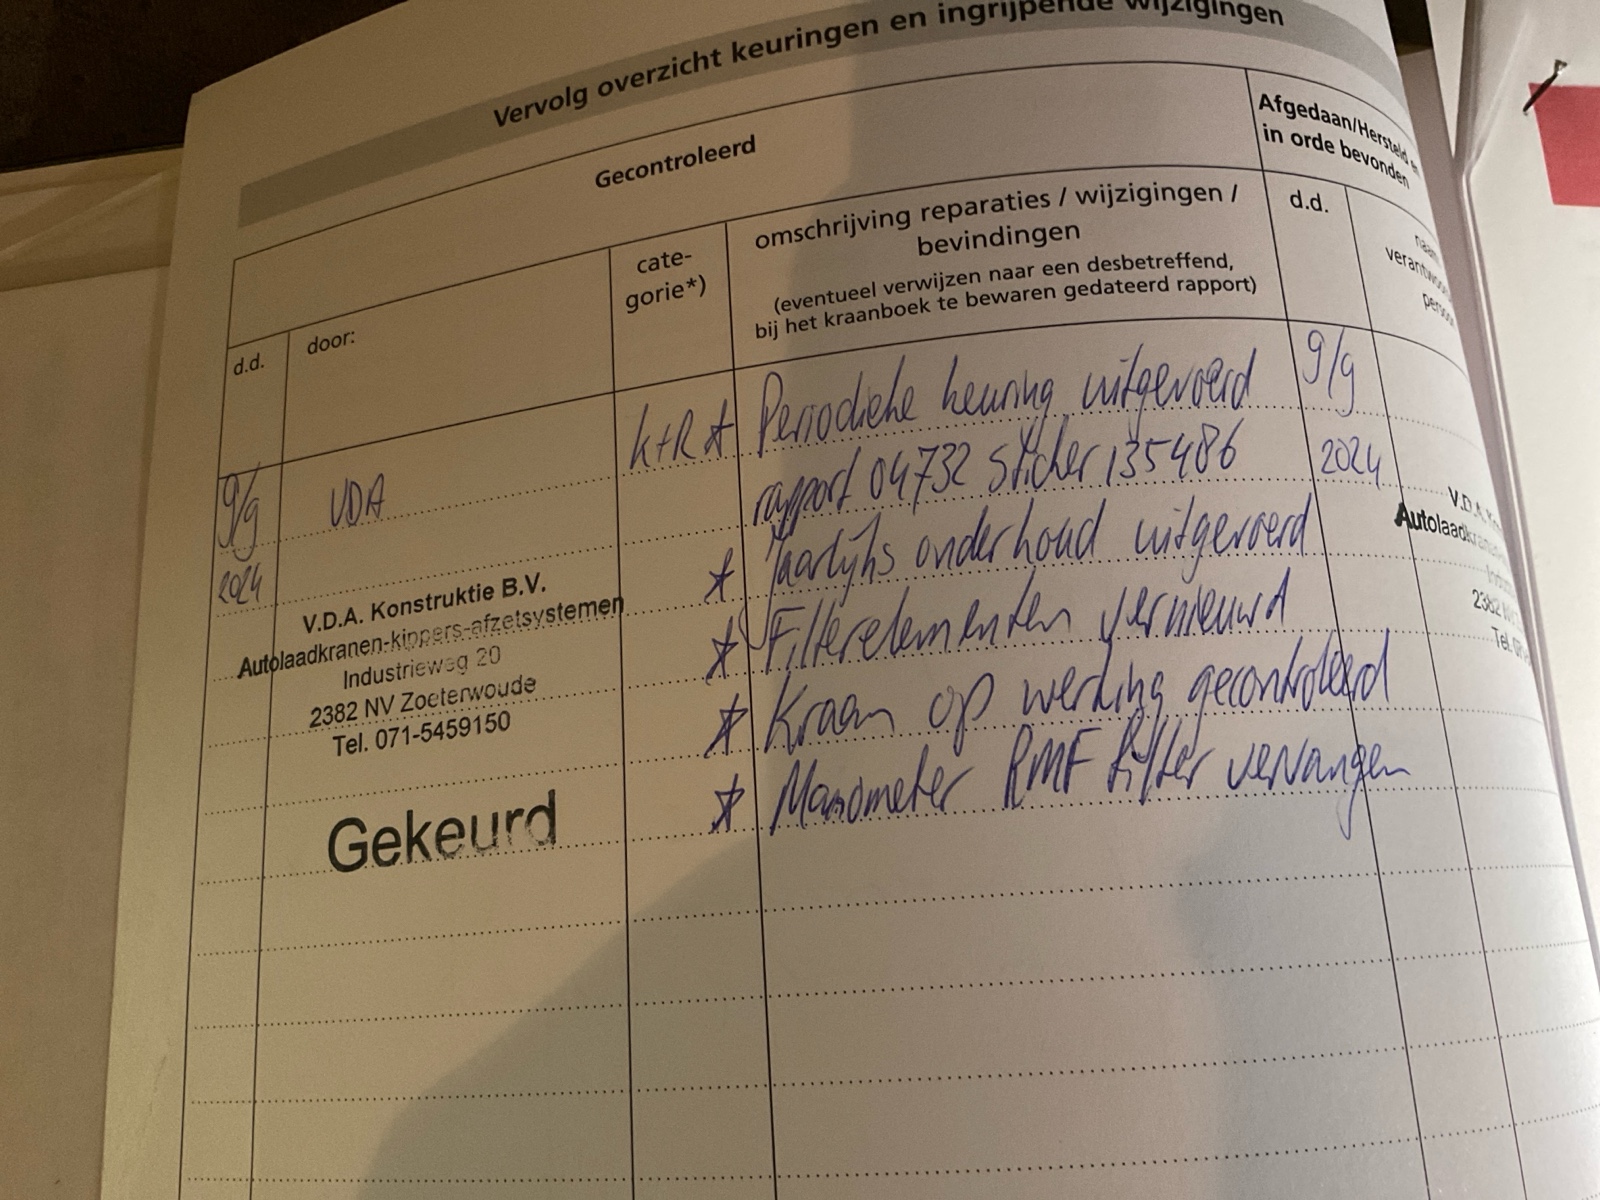 Vervolg overzicht keuringen en ingrijpende wijzigingen
Gecontroleerd
Afgedaan/Hersteld en
in orde bevonden
d.d.
door:
cate-
gorie*)
omschrijving reparaties / wijzigingen /
bevindingen
(eventueel verwijzen naar een desbetreffend,
bij het kraanboek te bewaren gedateerd rapport)
d.d.
9/9
2024
VDA
K+R * Periodieke keuring uitgevoerd
rapport 04732 sticker 135486
* Jaarlijks onderhoud uitgevoerd
* Filterelementen vernieuwd
* Kraan op werking gecontroleerd
* Manometer RMF filter vervangen
9/9
2024
V.D.A. Konstruktie B.V.
Autolaadkranen-kippers-afzetsystemen
Industrieweg 20
2382 NV Zoeterwoude
Tel. 071-5459150
Gekeurd
V.D.A.
2382
Tel.